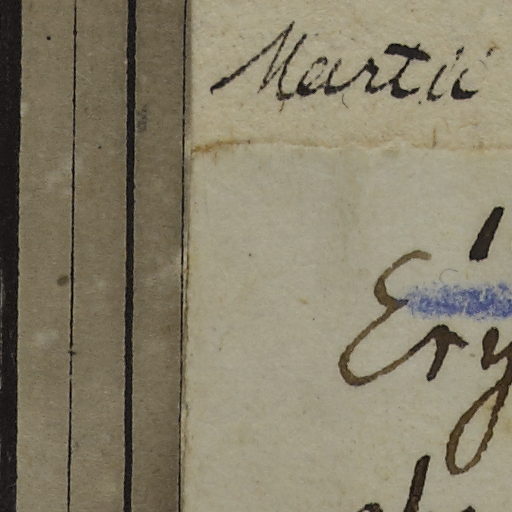 Martii
Ery